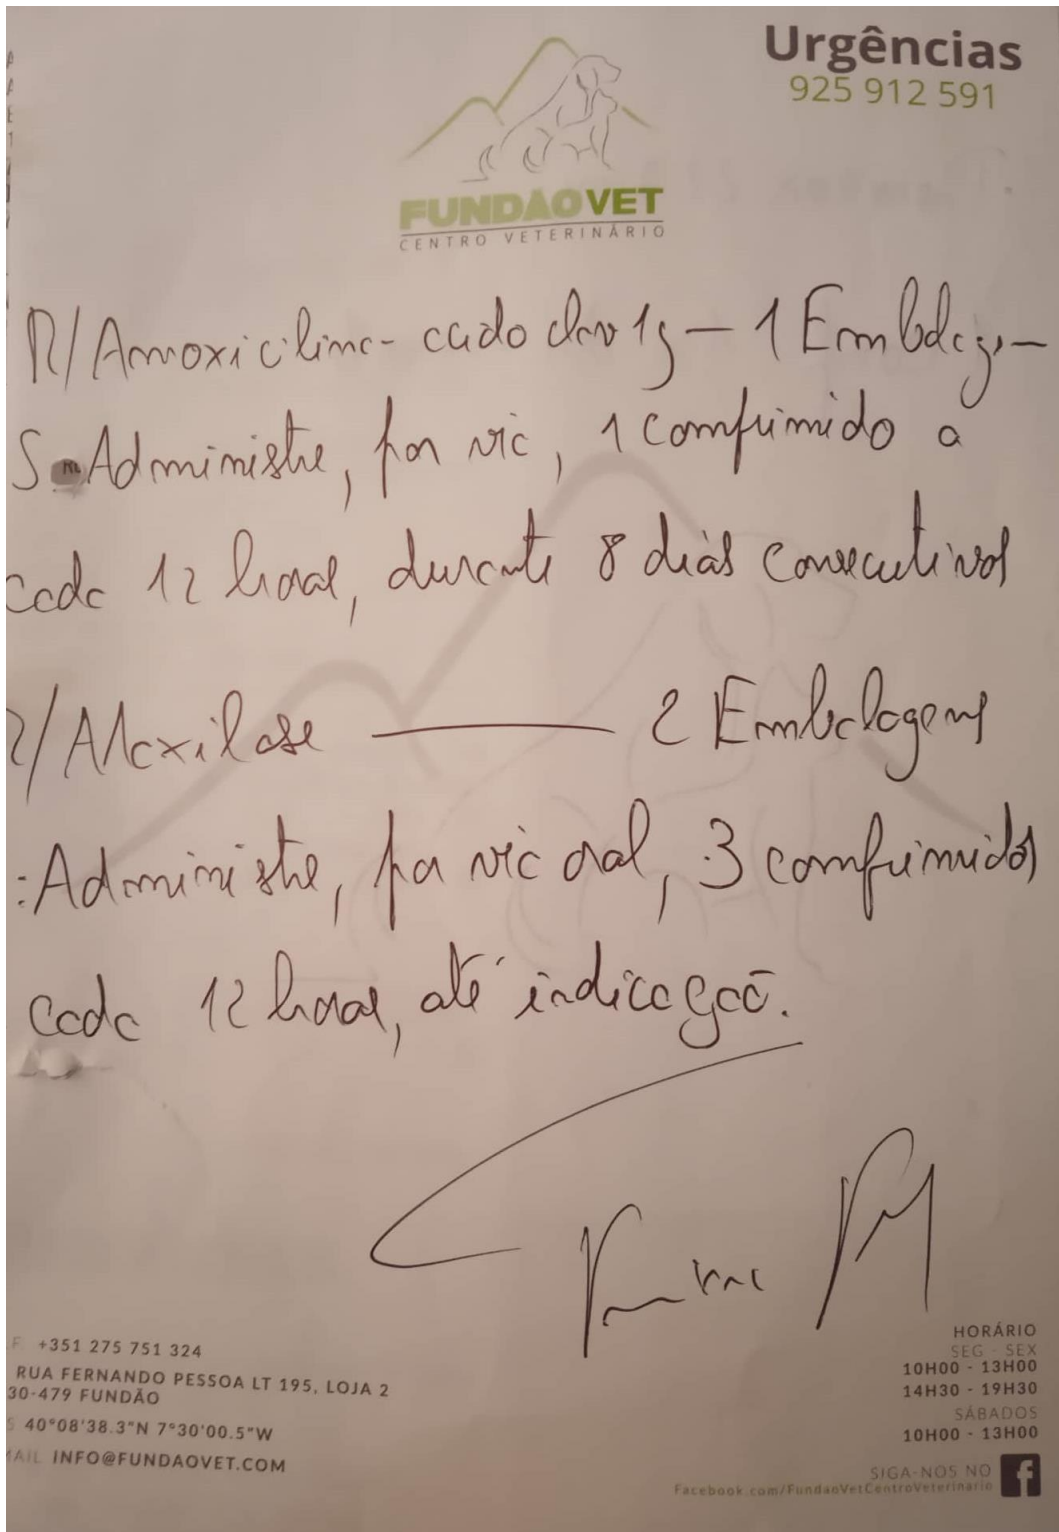 Urgências
925 912 591
FUNDAOVET
CENTRO VETERINÁRIO
R/Amoxicilina - ácido clav 1g — 1 Embalagem
S Administre, por via, 1 comprimido a
cada 12 horas, durante 8 dias consecutivos
R/Maxilase — 2 Embalagens
: Administre, por via oral, 3 comprimidos
cada 12 horas, até indicação.
+351 275 751 324
RUA FERNANDO PESSOA LT 195, LOJA 2
30-479 FUNDÃO
40°08'38.3"N 7°30'00.5"W
INFO@FUNDAOVET.COM
HORÁRIO
SEG - SEX
10H00 - 13H00
14H30 - 19H30
SÁBADOS
10H00 - 13H00
SIGA-NOS NO
Facebook.com/FundaoVetCentroVeterinario